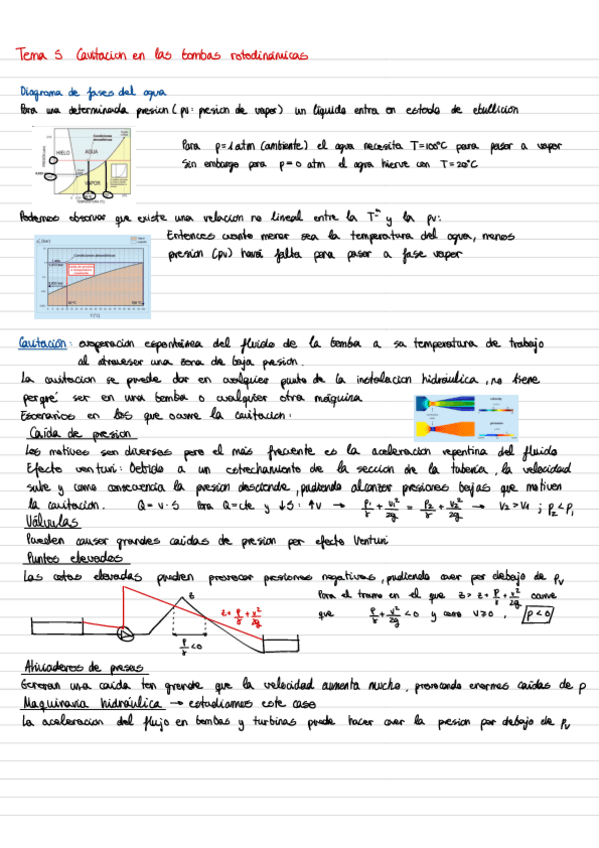 Tema 5 Cavitacion en las bombas rotodinámicas
Diagrama de fases del agua
Para una determinada presion (pv: presion de vapor) un líquido entra en estado de ebullición
HIELO AGUA
VAPOR
Para p=1 atm (ambiente) el agua necesita T=100°C para pasar a vapor
Sin embargo para p=0 atm el agua hierve con T=20°C
Podemos observar que existe una relacion no lineal entre la Tª y la pv:
Entonces cuanto menor sea la temperatura del agua, menos
presion (pv) hará falta para pasar a fase vapor
Condiciones atmosféricas
T (°C)
Cavitación: evaporacion espontánea del fluido de la bomba a su temperatura de trabajo
al atravesar una zona de baja presion.
La cavitacion se puede dar en cualquier punto de la instalacion hidráulica, no tiene
porqué ser en una bomba o cualquier otra máquina
Escenarios en los que ocurre la cavitacion:
Caida de presion
Los motivos son diversos pero el más frecuente es la aceleracion repentina del fluido
Efecto venturi: Debido a un estrechamiento de la seccion de la tubería, la velocidad
sube y como consecuencia la presion desciende, pudiendo alcanzar presiones bajas que motiven
la cavitacion. Q = v · S Para Q=cte y ↓S : ↑V → p₁/γ + v₁²/2g = p₂/γ + v₂²/2g → V₂ > V₁ ; p₂ < p₁
Válvulas
Pueden causar grandes caídas de presion por efecto Venturi
Puntos elevados
Las cotas elevadas pueden provocar presiones negativas, pudiendo caer por debajo de pv
Para el tramo en el que z > z + p/γ + v²/2g ocurre
que p/γ + v²/2g < 0 y como v ≥ 0 , p < 0
z
z + p/γ + v²/2g
p/γ < 0
Aliviaderos de presas
Generan una caída tan grande que la velocidad aumenta mucho, provocando enormes caídas de p
Maquinaria hidráulica → estudiamos este caso
La aceleracion del flujo en bombas y turbinas puede hacer caer la presion por debajo de pv